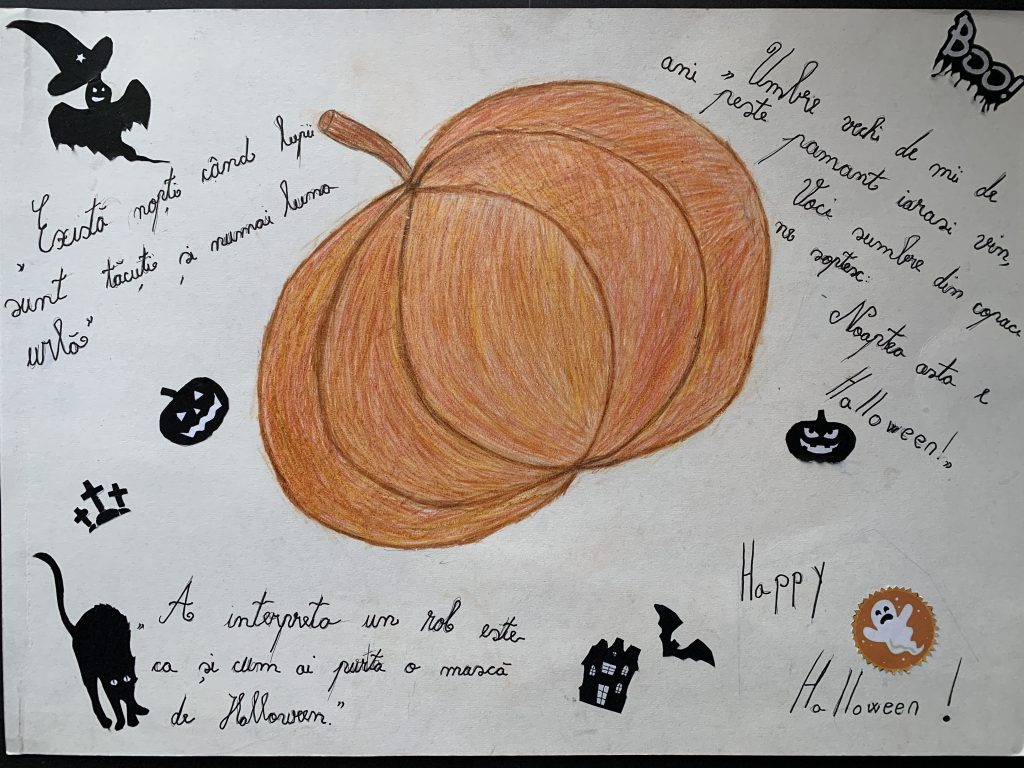 „Există nopți când lupii
sunt tăcuți și numai luna
urlă”
„Umbre vechi de mii de
ani peste pamant iarasi vin,
Voci sumbre din copaci
ne soptesc:
- Noaptea asta e
Halloween!”
BOO!
„A interpreta un rol este
ca și cum ai purta o mască
de Halloween.”
Happy
Halloween!